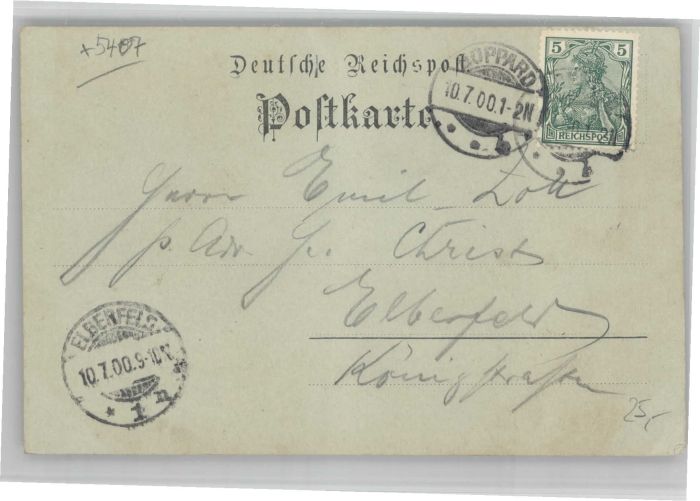 +5407
Deutsche Reichspost
Postkarte
BOPPARD
10.7.00.1-2N
b
5 5
REICHSPOST
Herrn Emil Zott
p. Adr. Christ
Elberfeld
Königstraße
ELBERFELD
10.7.00.9-10N
* 1 n
25,-